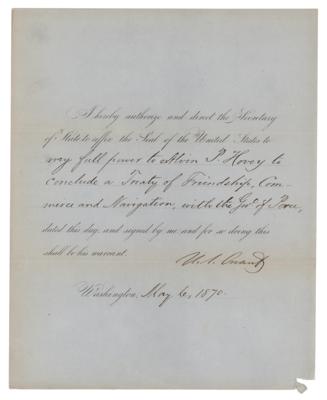 I hereby authorize and direct the Secretary
of State to affix the Seal of the United States to
my full power to Alvin P. Hovey to
conclude a Treaty of Friendship, Com-
merce and Navigation, with the Govt. of Peru,
dated this day, and signed by me and for so doing this
shall be his warrant.
U. S. Grant
Washington, May 6, 1870.